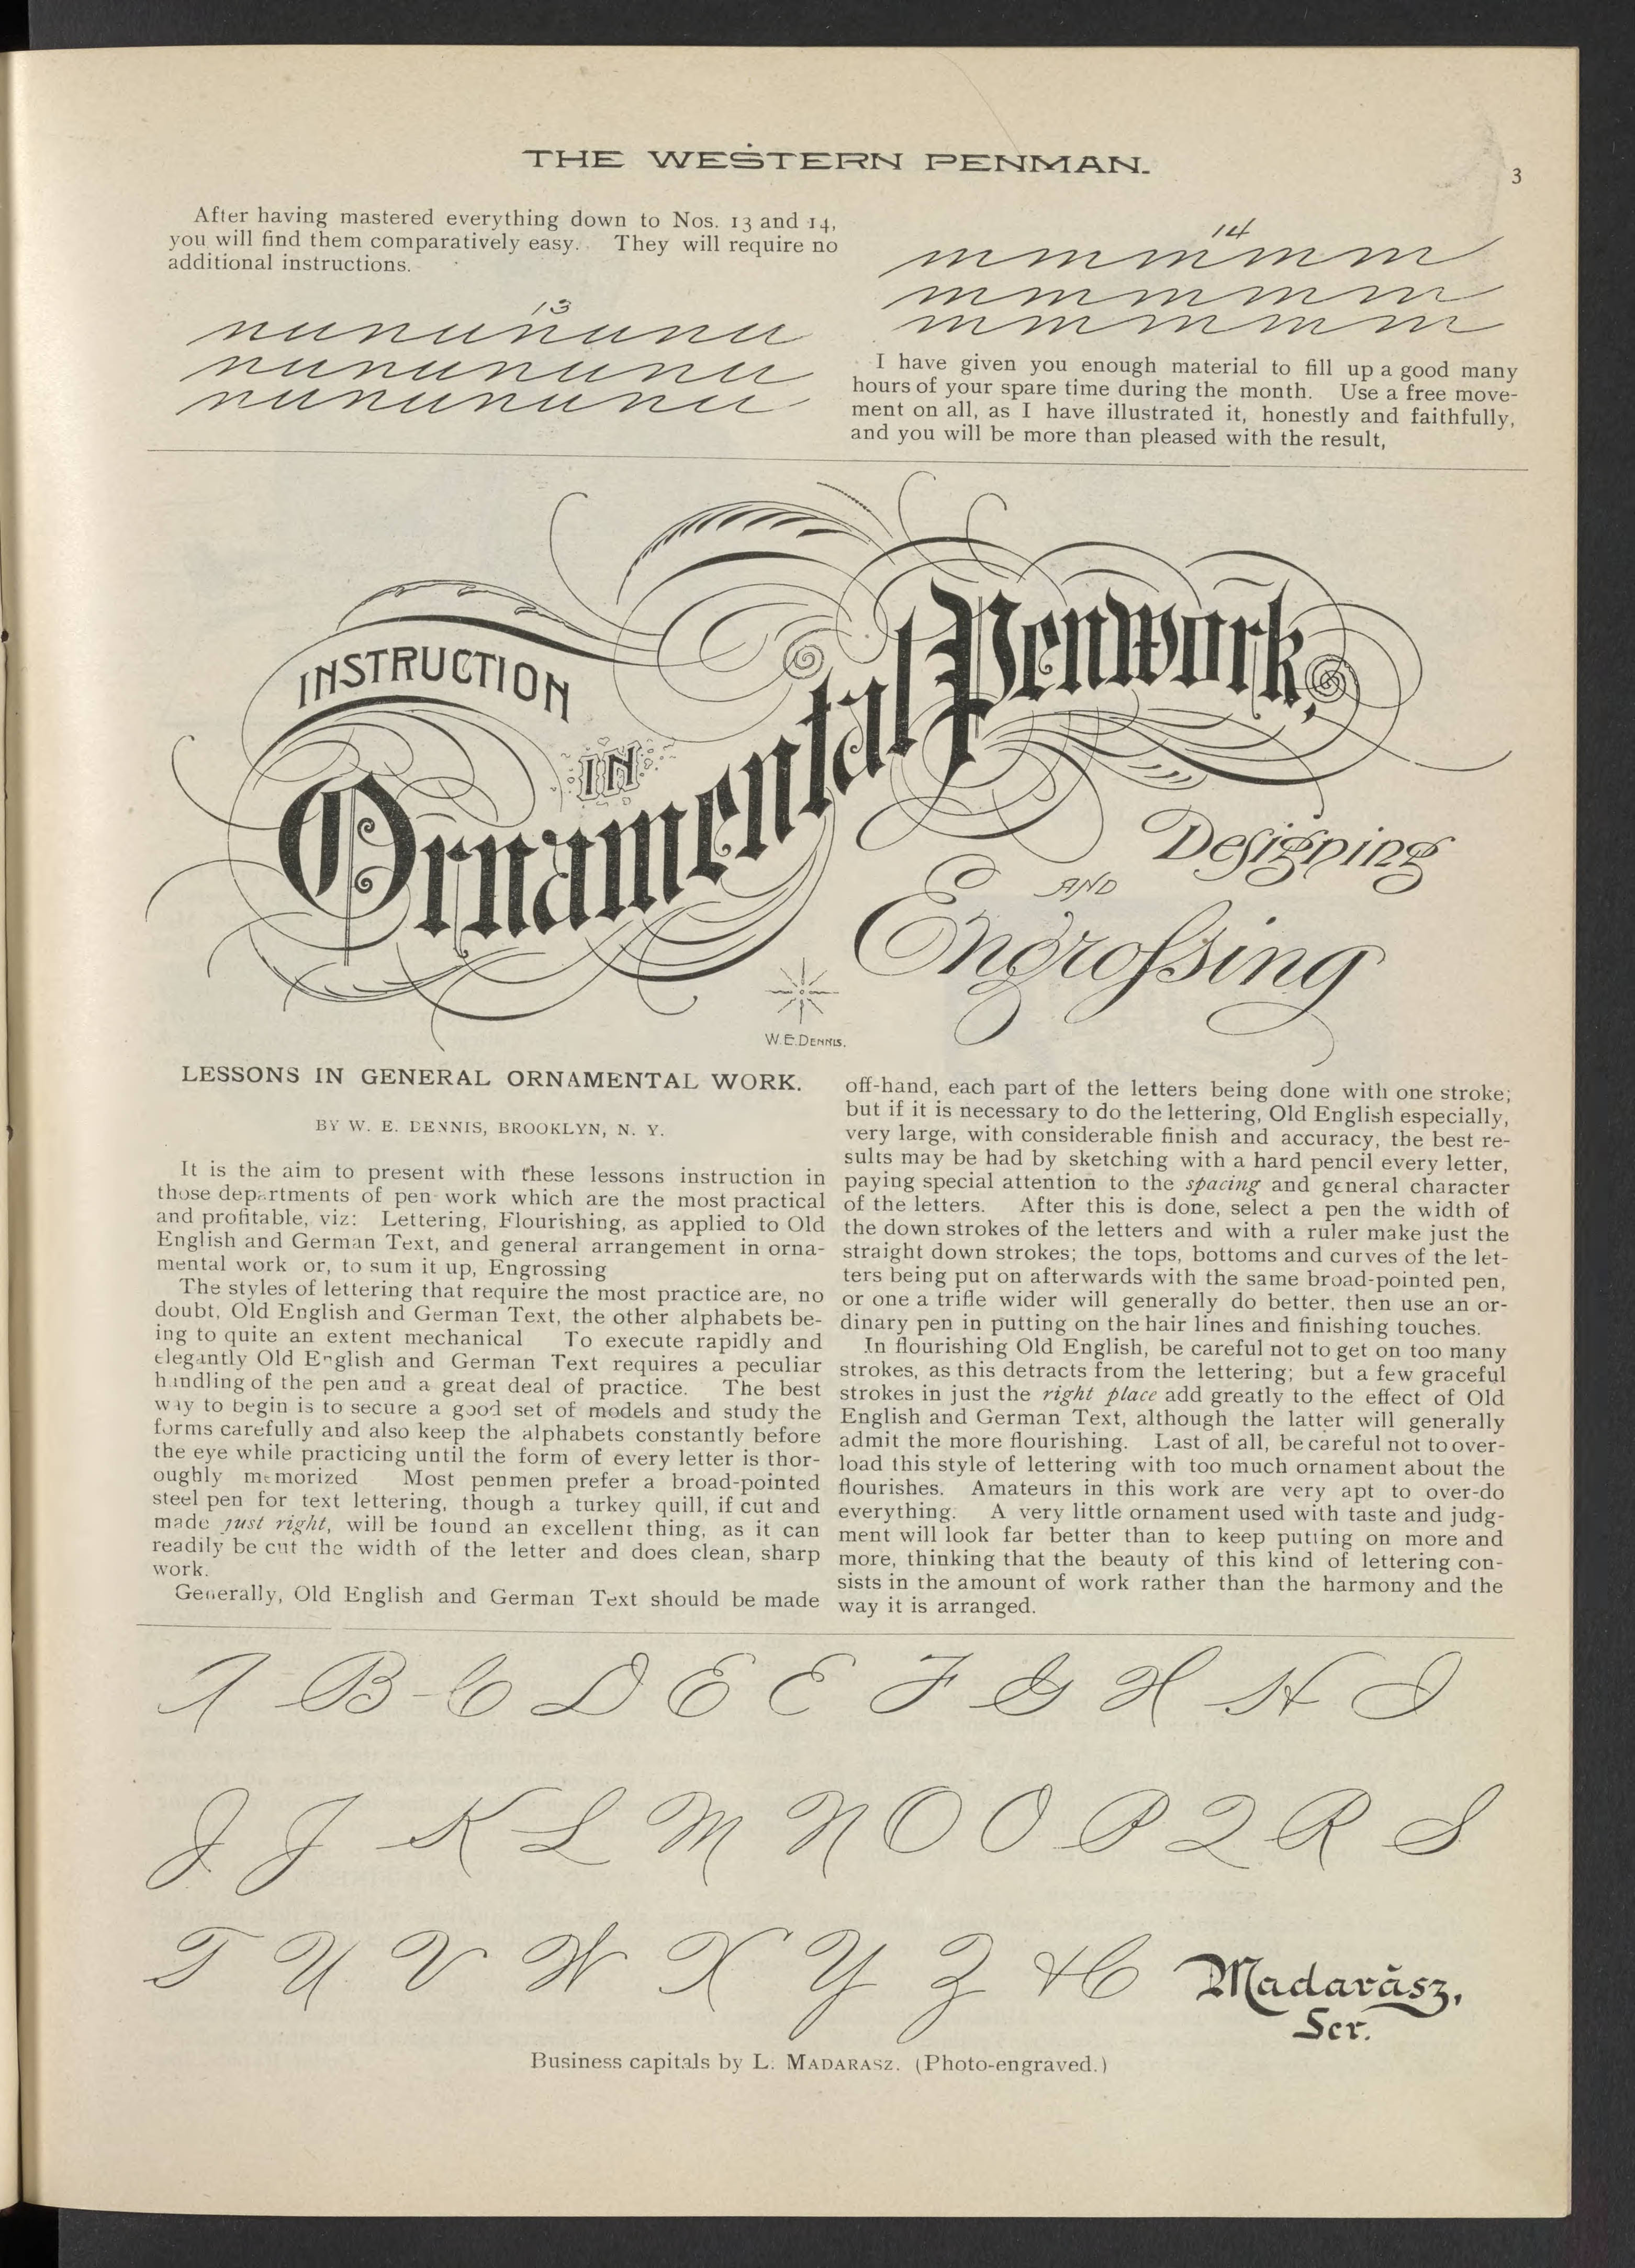 THE WESTERN PENMAN.
3
After having mastered everything down to Nos. 13 and 14,
you will find them comparatively easy. They will require no
additional instructions.
13
nunununununu
nunununununu
nunununununu
14
m m m m m m
m m m m m m
m m m m m m
I have given you enough material to fill up a good many
hours of your spare time during the month. Use a free move-
ment on all, as I have illustrated it, honestly and faithfully,
and you will be more than pleased with the result,
INSTRUCTION
IN
Ornamental Penwork,
Designing
AND
Engrossing
W. E. DENNIS.
LESSONS IN GENERAL ORNAMENTAL WORK.
BY W. E. DENNIS, BROOKLYN, N. Y.
It is the aim to present with these lessons instruction in
those departments of pen work which are the most practical
and profitable, viz: Lettering, Flourishing, as applied to Old
English and German Text, and general arrangement in orna-
mental work or, to sum it up, Engrossing
The styles of lettering that require the most practice are, no
doubt, Old English and German Text, the other alphabets be-
ing to quite an extent mechanical To execute rapidly and
elegantly Old English and German Text requires a peculiar
handling of the pen and a great deal of practice. The best
way to begin is to secure a good set of models and study the
forms carefully and also keep the alphabets constantly before
the eye while practicing until the form of every letter is thor-
oughly memorized Most penmen prefer a broad-pointed
steel pen for text lettering, though a turkey quill, if cut and
made just right, will be found an excellent thing, as it can
readily be cut the width of the letter and does clean, sharp
work.
Generally, Old English and German Text should be made
off-hand, each part of the letters being done with one stroke;
but if it is necessary to do the lettering, Old English especially,
very large, with considerable finish and accuracy, the best re-
sults may be had by sketching with a hard pencil every letter,
paying special attention to the spacing and general character
of the letters. After this is done, select a pen the width of
the down strokes of the letters and with a ruler make just the
straight down strokes; the tops, bottoms and curves of the let-
ters being put on afterwards with the same broad-pointed pen,
or one a trifle wider will generally do better, then use an or-
dinary pen in putting on the hair lines and finishing touches.
In flourishing Old English, be careful not to get on too many
strokes, as this detracts from the lettering; but a few graceful
strokes in just the right place add greatly to the effect of Old
English and German Text, although the latter will generally
admit the more flourishing. Last of all, be careful not to over-
load this style of lettering with too much ornament about the
flourishes. Amateurs in this work are very apt to over-do
everything. A very little ornament used with taste and judg-
ment will look far better than to keep putting on more and
more, thinking that the beauty of this kind of lettering con-
sists in the amount of work rather than the harmony and the
way it is arranged.
A B C D E E F G H H I
J J K L M N O O P Q R S
T U V W X Y Z & C
Madarász,
Scr.
Business capitals by L. MADARASZ. (Photo-engraved.)